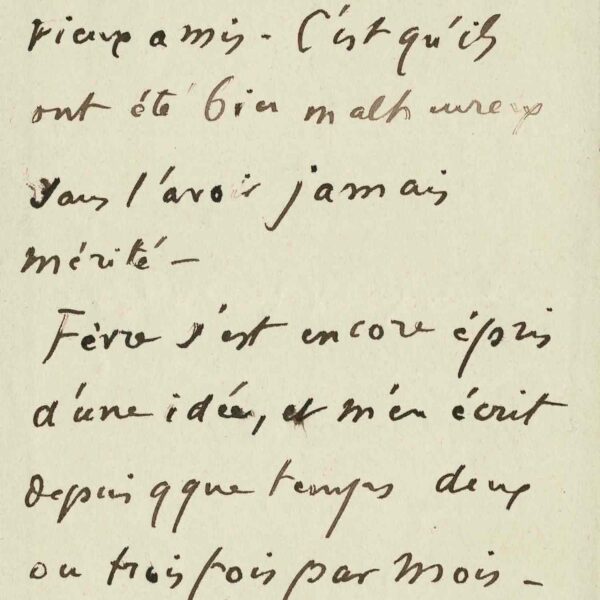 vieux amis - C'est qu'ils
ont été bien malheureux
sans l'avoir jamais
mérité -
Fèvre s'est encore épris
d'une idée, et m'en écrit
depuis qque temps deux
ou trois fois par mois -